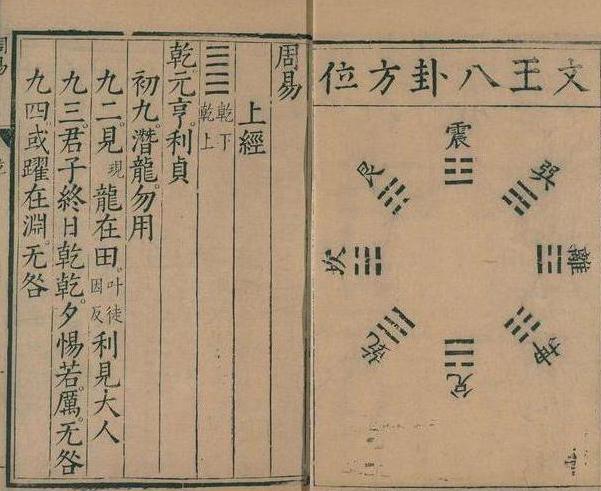 文王八卦方位
震
巽
離
坤
兌
乾
坎
艮
周易
上經
乾下
乾上
乾。元亨。利貞
初九。潛龍。勿用
九二。見現龍在田。叶徒因反利見大人
九三。君子終日乾乾。夕惕若。厲。无咎
九四。或躍在淵。无咎
周易